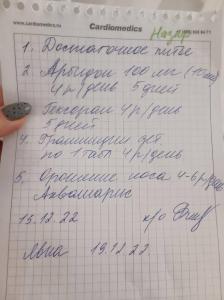 www.cardiomedics.ru
Cardiomedics
Назар
1. Достаточное питье
2. Арбидол 100 мг
4 р/день 5 дней
Гексорал 4 р/день
5 дней
4. Граммидин дет.
по 1 табл 4 р/день
5. Орошение носа 4-6 р/день
Аквамарис
15.12.22 к/о
Явка 19.12.22